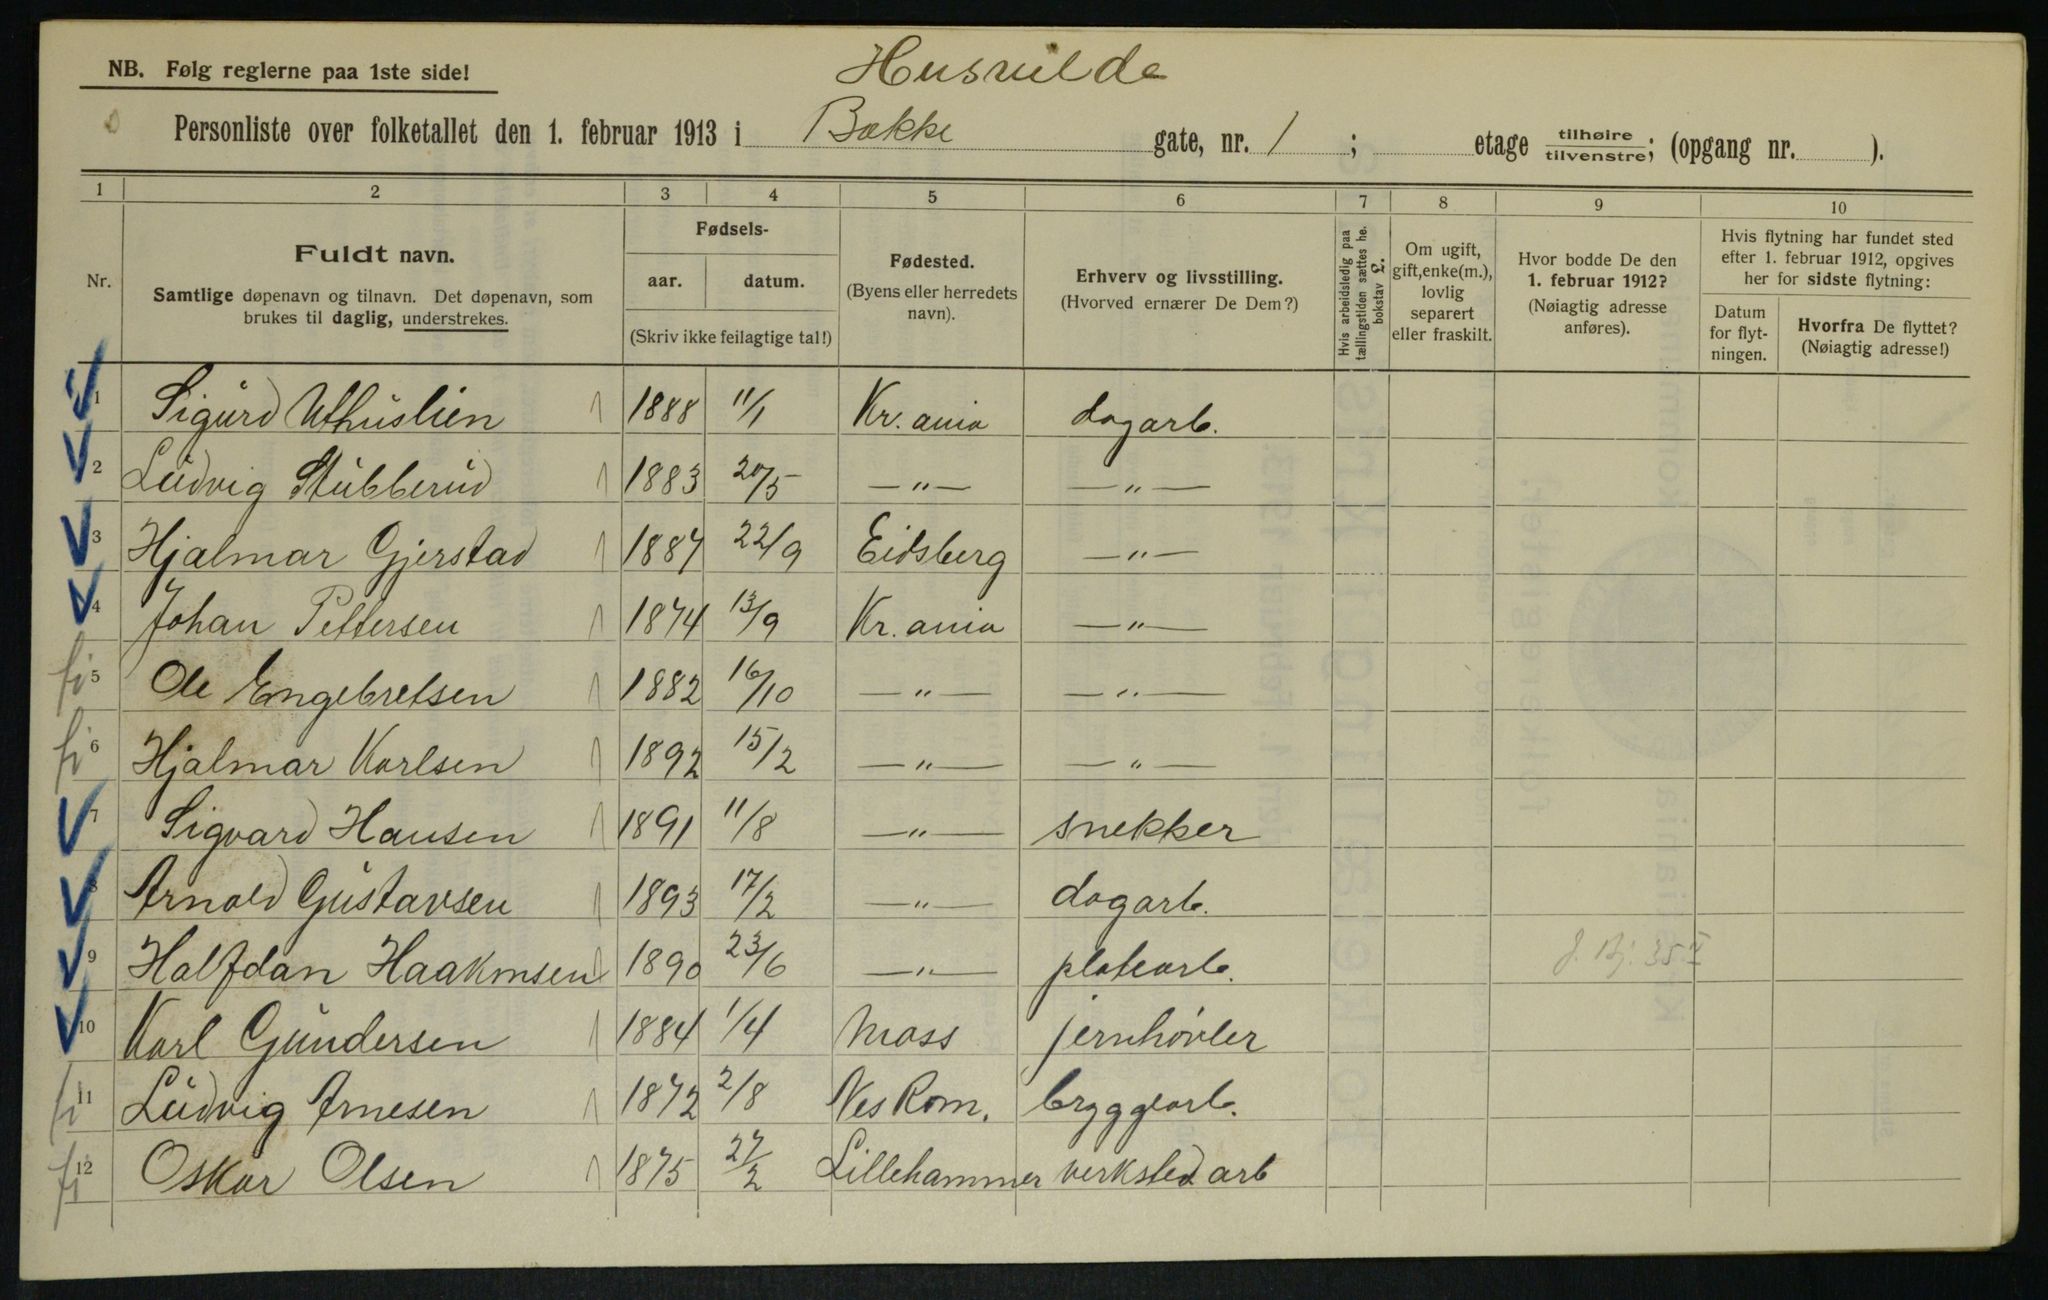 Husvilde
NB. Følg reglerne paa 1ste side!
Personliste over folketallet den 1. februar 1913 i Bakke gate, nr. 1 ; etage tilhøire tilvenstre; (opgang nr. ).
1 2 3 4 5 6 7 8 9 10
Nr.
Fuldt navn.
Samtlige døpenavn og tilnavn. Det døpenavn, som
brukes til daglig, understrekes.
Fødsels-
aar. datum.
(Skriv ikke feilagtige tal!)
Fødested.
(Byens eller herredets
navn).
Erhverv og livsstilling.
(Hvorved ernærer De Dem?)
Hvis arbeidsledig paa
tællingstiden sættes he.
bokstav L.
Om ugift,
gift, enke(m.),
lovlig
separert
eller fraskilt.
Hvor bodde De den
1. februar 1912?
(Nøiagtig adresse
anføres).
Hvis flytning har fundet sted
efter 1. februar 1912, opgives
her for sidste flytning:
Datum
for flyt-
ningen.
Hvorfra De flyttet?
(Nøiagtig adresse!)
1 Sigurd Uthuslien 1888 11/1 Kr.ania dagarb.
2 Ludvig Stubberud 1883 20/5 —"— —"—
3 Hjalmar Gjerstad 1887 22/9 Eidsberg —"—
4 Johan Pettersen 1874 13/9 Kr.ania —"—
fi 5 Ole Engebretsen 1882 16/10 —"— —"—
fi 6 Hjalmar Karlsen 1892 15/2 —"— —"—
7 Sigvard Hansen 1891 11/8 —"— snekker
8 Arnold Gustavsen 1893 17/2 —"— dagarb.
9 Halfdan Haakonsen 1890 23/6 —"— platearb.
10 Karl Gundersen 1884 1/4 Moss jernhøvler
fi 11 Ludvig Arnesen 1872 2/8 Nes Rom. bryggearb.
fi 12 Oskar Olsen 1875 27/2 Lillehammer verksted arb